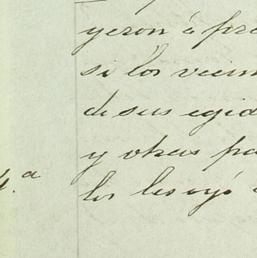 yeron á pre
si los vecin
de sus egid
y otras pa
4.ª
los les oyó